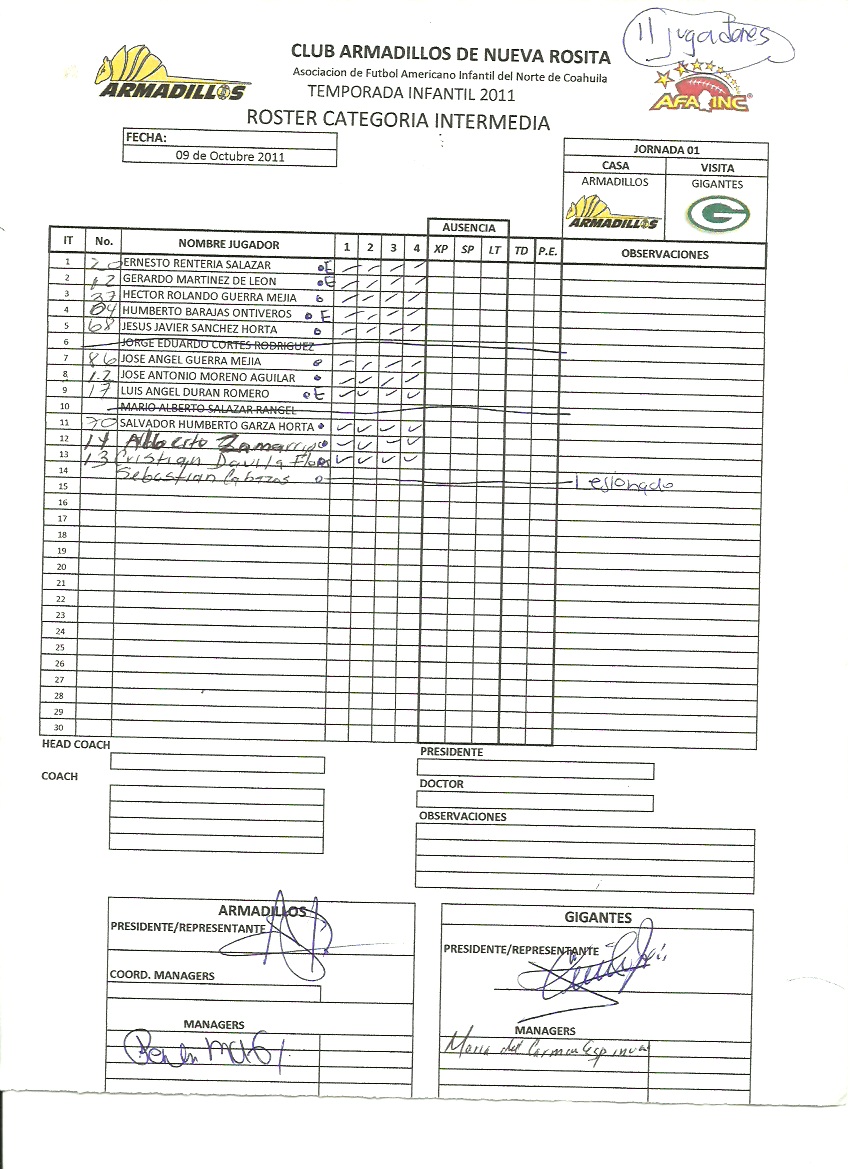 11 jugadores
CLUB ARMADILLOS DE NUEVA ROSITA
Asociacion de Futbol Americano Infantil del Norte de Coahuila
ARMADILLOS
TEMPORADA INFANTIL 2011
AFAINC
ROSTER CATEGORIA INTERMEDIA
FECHA:
09 de Octubre 2011
JORNADA 01
CASA VISITA
ARMADILLOS GIGANTES
ARMADILLOS G
AUSENCIA
IT No. NOMBRE JUGADOR 1 2 3 4 XP SP LT TD P.E. OBSERVACIONES
1 20 ERNESTO RENTERIA SALAZAR E
2 12 GERARDO MARTINEZ DE LEON E
3 37 HECTOR ROLANDO GUERRA MEJIA
4 84 HUMBERTO BARAJAS ONTIVEROS E
5 68 JESUS JAVIER SANCHEZ HORTA
6 JORGE EDUARDO CORTES RODRIGUEZ
7 86 JOSE ANGEL GUERRA MEJIA
8 12 JOSE ANTONIO MORENO AGUILAR
9 17 LUIS ANGEL DURAN ROMERO E
10 MARIO ALBERTO SALAZAR RANGEL
11 70 SALVADOR HUMBERTO GARZA HORTA
12 14 Alberto Zamarripa
13 13 Cristian Davila Flores
14 Sebastian Cabezas
15 Lesionado
16
17
18
19
20
21
22
23
24
25
26
27
28
29
30
HEAD COACH
PRESIDENTE
COACH
DOCTOR
OBSERVACIONES
ARMADILLOS
PRESIDENTE/REPRESENTANTE
COORD. MANAGERS
MANAGERS
GIGANTES
PRESIDENTE/REPRESENTANTE
MANAGERS
Maria del Carmen Espinoza